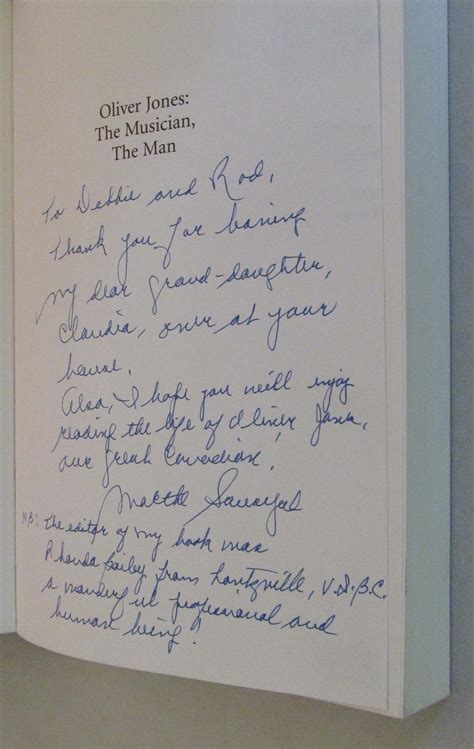 Oliver Jones:
The Musician,
The Man
To Debbie and Rod,
Thank you for having
my dear grand-daughter,
Claudia, over at your
house.
Also, I hope you will enjoy
reading the life of Oliver Jones,
our great Canadian!
Marthe Sansregret
N.B.: The editor of my book was
Rhonda Bailey from Lantzville, V.I. B.C.
a wonderful professional and
human being!